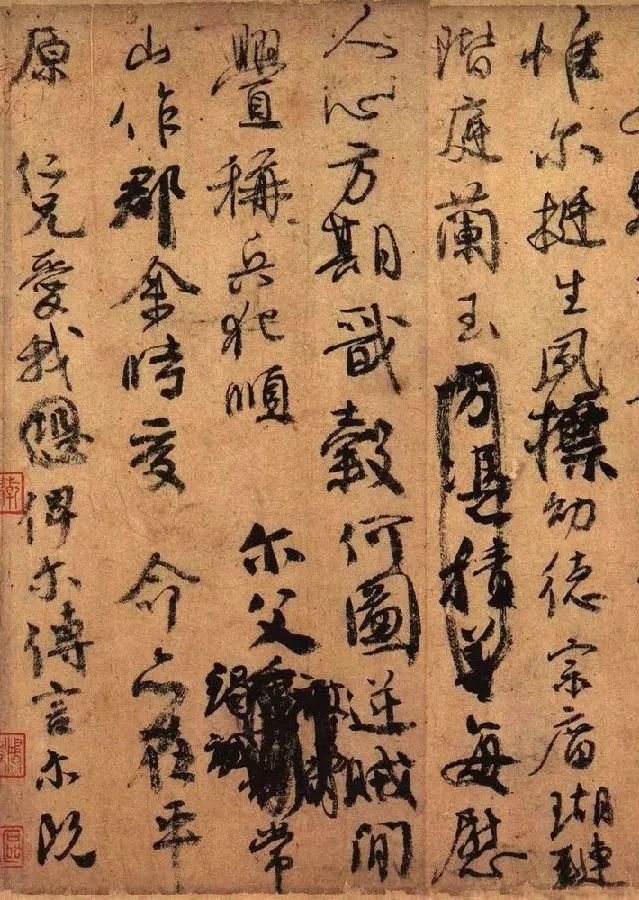 惟尔挺生夙標幼德宗廟瑚璉
階庭蘭玉方憑積善每慰
人心方期戩穀何圖逆賊間
舋稱兵犯順尔父常
山作郡余時受命亦在平
原仁兄愛我恐俾尔傳言尔既